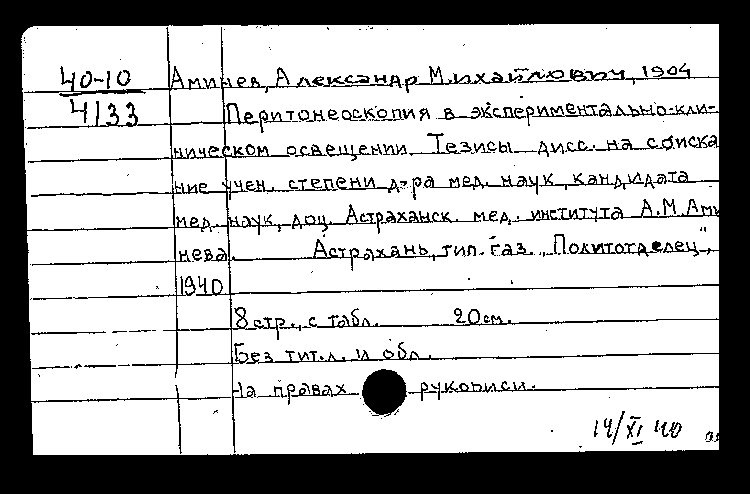 40-10
4133
Аминев, Александр Михайлович, 1904
Перитонеоскопия в экспериментально-кли-
ническом освещении. Тезисы дисс. на соиска
ние учен. степени д-ра мед. наук, кандидата
мед. наук, доц. Астраханск. мед. института А.М. Ами
нева. Астрахань, тип. газ. „Политотделец",
1940
8 стр., с табл. 20 см.
Без тит. л. и обл.
На правах рукописи.
14/XI 40